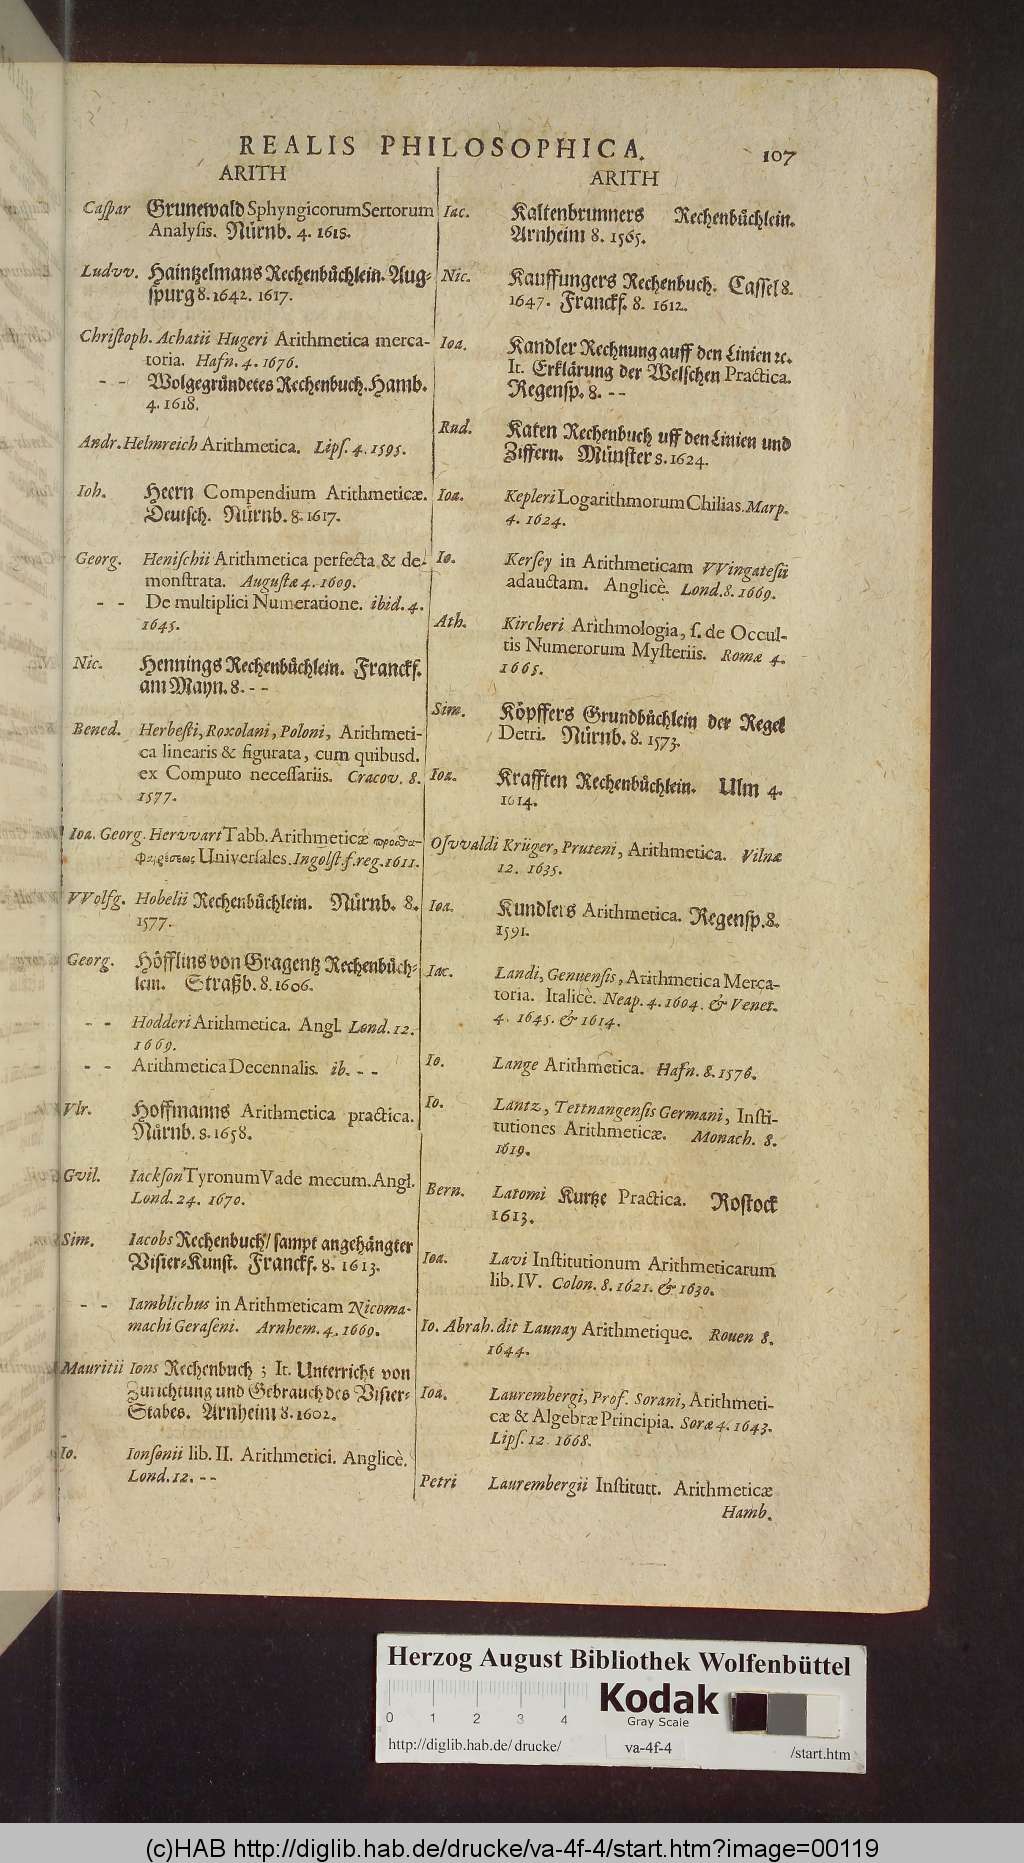 REALIS PHILOSOPHICA.
107
ARITH
Caſpar Grunewald Sphyngicorum Sertorum
Analyſis. Nürnb. 4. 1618.
Ludvv. Haintzelmans Rechenbüchlein. Aug-
ſpurg 8. 1642. 1617.
Chriſtoph. Achatii Hugeri Arithmetica merca-
toria. Hafn. 4. 1676.
- - Wolgegründetes Rechenbuch. Hamb.
4. 1618.
Andr. Helmreich Arithmetica. Lipſ. 4. 1595.
Ioh. Heern Compendium Arithmeticæ.
Deutſch. Nürnb. 8. 1617.
Georg. Heniſchii Arithmetica perfecta & de-
monſtrata. Auguſtæ 4. 1609.
- - De multiplici Numeratione. ibid. 4.
1645.
Nic. Hennings Rechenbüchlein. Franckf.
am Mayn. 8. - -
Bened. Herbeſti, Roxolani, Poloni, Arithmeti-
ca linearis & figurata, cum quibusd.
ex Computo neceſſariis. Cracov. 8.
1577.
Ioa. Georg. Hervvart Tabb. Arithmeticæ προσθα-
φαιρέσεως Univerſales. Ingolſt. f. reg. 1611.
VVolfg. Hobelii Rechenbüchlein. Nürnb. 8.
1577.
Georg. Höfflins von Gragentz Rechenbüch-
lein. Straßb. 8. 1606.
- - Hodderi Arithmetica. Angl. Lond. 12.
1669.
- - Arithmetica Decennalis. ib. - -
Vlr. Hoffmanns Arithmetica practica.
Nürnb. 8. 1658.
Gvil. Iackſon Tyronum Vade mecum. Angl.
Lond. 24. 1670.
Sim. Iacobs Rechenbuch / ſampt angehängter
Viſier-Kunſt. Franckf. 8. 1613.
- - Iamblichus in Arithmeticam Nicoma-
machi Geraſeni. Arnhem. 4. 1669.
Mauritii Ions Rechenbuch; It. Unterricht von
Zurichtung und Gebrauch des Viſier-
Stabes. Arnheim 8. 1602.
Io. Ionſonii lib. II. Arithmetici. Anglicè.
Lond. 12. - -
ARITH
Iac. Kaltenbrunners Rechenbüchlein.
Arnheim 8. 1565.
Nic. Kauffungers Rechenbuch. Caſſel 8.
1647. Franckf. 8. 1612.
Ioa. Kandler Rechnung auff den Linien ꝛc.
It. Erklärung der Welſchen Practica.
Regenſp. 8. - -
Rud. Katen Rechenbuch uff den Linien und
Ziffern. Münſter 8. 1624.
Ioa. Kepleri Logarithmorum Chilias. Marp.
4. 1624.
Io. Kerſey in Arithmeticam VVingateſii
adauctam. Anglicè. Lond. 8. 1669.
Ath. Kircheri Arithmologia, ſ. de Occul-
tis Numerorum Myſteriis. Romæ 4.
1665.
Sim. Köpffers Grundbüchlein der Regel
Detri. Nürnb. 8. 1573.
Ioa. Krafften Rechenbüchlein. Ulm 4.
1614.
Oſvvaldi Krüger, Pruteni, Arithmetica. Vilnæ
12. 1635.
Ioa. Kundlers Arithmetica. Regenſp. 8.
1591.
Iac. Landi, Genuenſis, Arithmetica Merca-
toria. Italicè. Neap. 4. 1604. & Venet.
4. 1645. & 1614.
Io. Lange Arithmetica. Hafn. 8. 1576.
Io. Lantz, Tettnangenſis Germani, Inſti-
tutiones Arithmeticæ. Monach. 8.
1619.
Bern. Latomi Kurtze Practica. Roſtock
1613.
Ioa. Lavi Inſtitutionum Arithmeticarum
lib. IV. Colon. 8. 1621. & 1630.
Io. Abrah. dit Launay Arithmetique. Rouen 8.
1644.
Ioa. Laurembergi, Prof. Sorani, Arithmeti-
cæ & Algebræ Principia. Soræ 4. 1643.
Lipſ. 12. 1668.
Petri Laurembergii Inſtitutt. Arithmeticæ
Hamb.
Herzog August Bibliothek Wolfenbüttel
0 1 2 3 4
Kodak
Gray Scale
http://diglib.hab.de/drucke/
va-4f-4
/start.htm
(c)HAB http://diglib.hab.de/drucke/va-4f-4/start.htm?image=00119